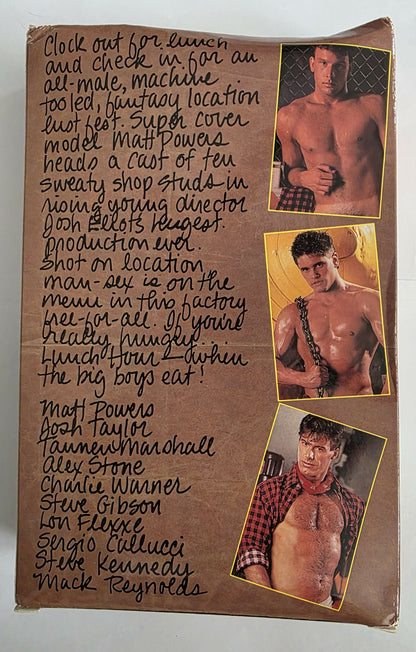 Clock out for lunch
and check in for an
all-male, machine
tooled, fantasy location
lust fest. Super cover
model Matt Powers
heads a cast of ten
sweaty shop studs in
rising young director
Josh Eliot's hugest
production ever.
Shot on location
man-sex is on the
menu in this factory
free-for-all. If you're
really hungry...
Lunch Hour—when
the big boys eat!
Matt Powers
Josh Taylor
Tanner Marshall
Alex Stone
Charlie Warner
Steve Gibson
Lon Flexxe
Sergio Callucci
Steve Kennedy
Mack Reynolds